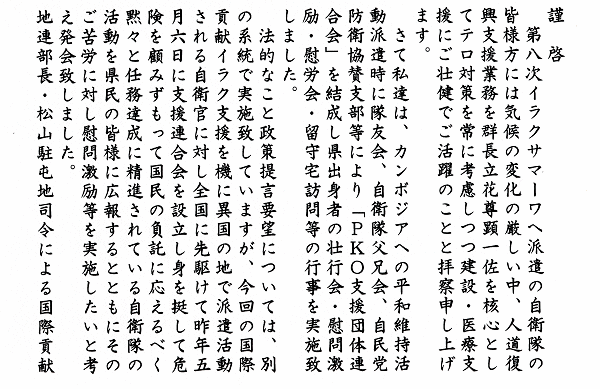 謹啓
第八次イラクサマーワへ派遣の自衛隊の
皆様方には気候の変化の厳しい中、人道復
興支援業務を群長立花尊顕一佐を核心とし
てテロ対策を常に考慮しつつ建設・医療支
援にご壮健でご活躍のことと拝察申し上げ
ます。
さて私達は、カンボジアへの平和維持活
動派遣時に隊友会、自衛隊父兄会、自民党
防衛協賛支部等により「PKO支援団体連
合会」を結成し県出身者の壮行会・慰問激
励・慰労会・留守宅訪問等の行事を実施致
しました。
法的なこと政策提言要望については、別
の系統で実施致していますが、今回の国際
貢献イラク支援を機に異国の地で派遣活動
される自衛官に対し全国に先駆けて昨年五
月六日に支援連合会を設立し身を挺して危
険を顧みずもって国民の負託に応えるべく
黙々と任務達成に精進されている自衛隊の
活動を県民の皆様に広報するとともにその
ご苦労に対し慰問激励等を実施したいと考
え発会致しました。
地連部長・松山駐屯地司令による国際貢献